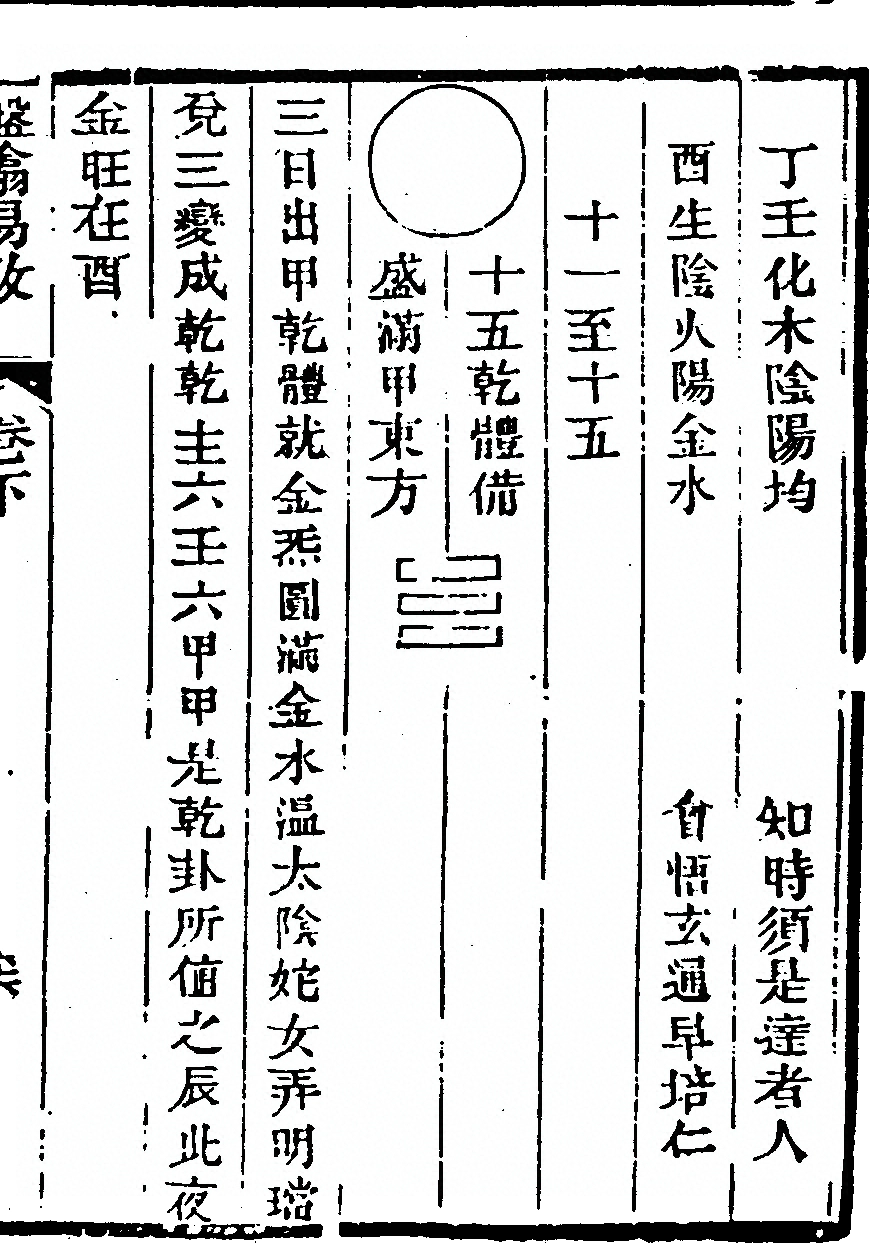 丁壬化木陰陽均　知時須是達者人
酉生陰火陽金水　會悟玄通早培仁
十一至十五
十五乾體備
盛滿甲東方
三日出甲乾體就金炁圓滿金水溫太陰姹女弄明璫
兌三變成乾乾主六壬六甲甲是乾卦所值之辰此夜
金旺在酉
易攷
卷下